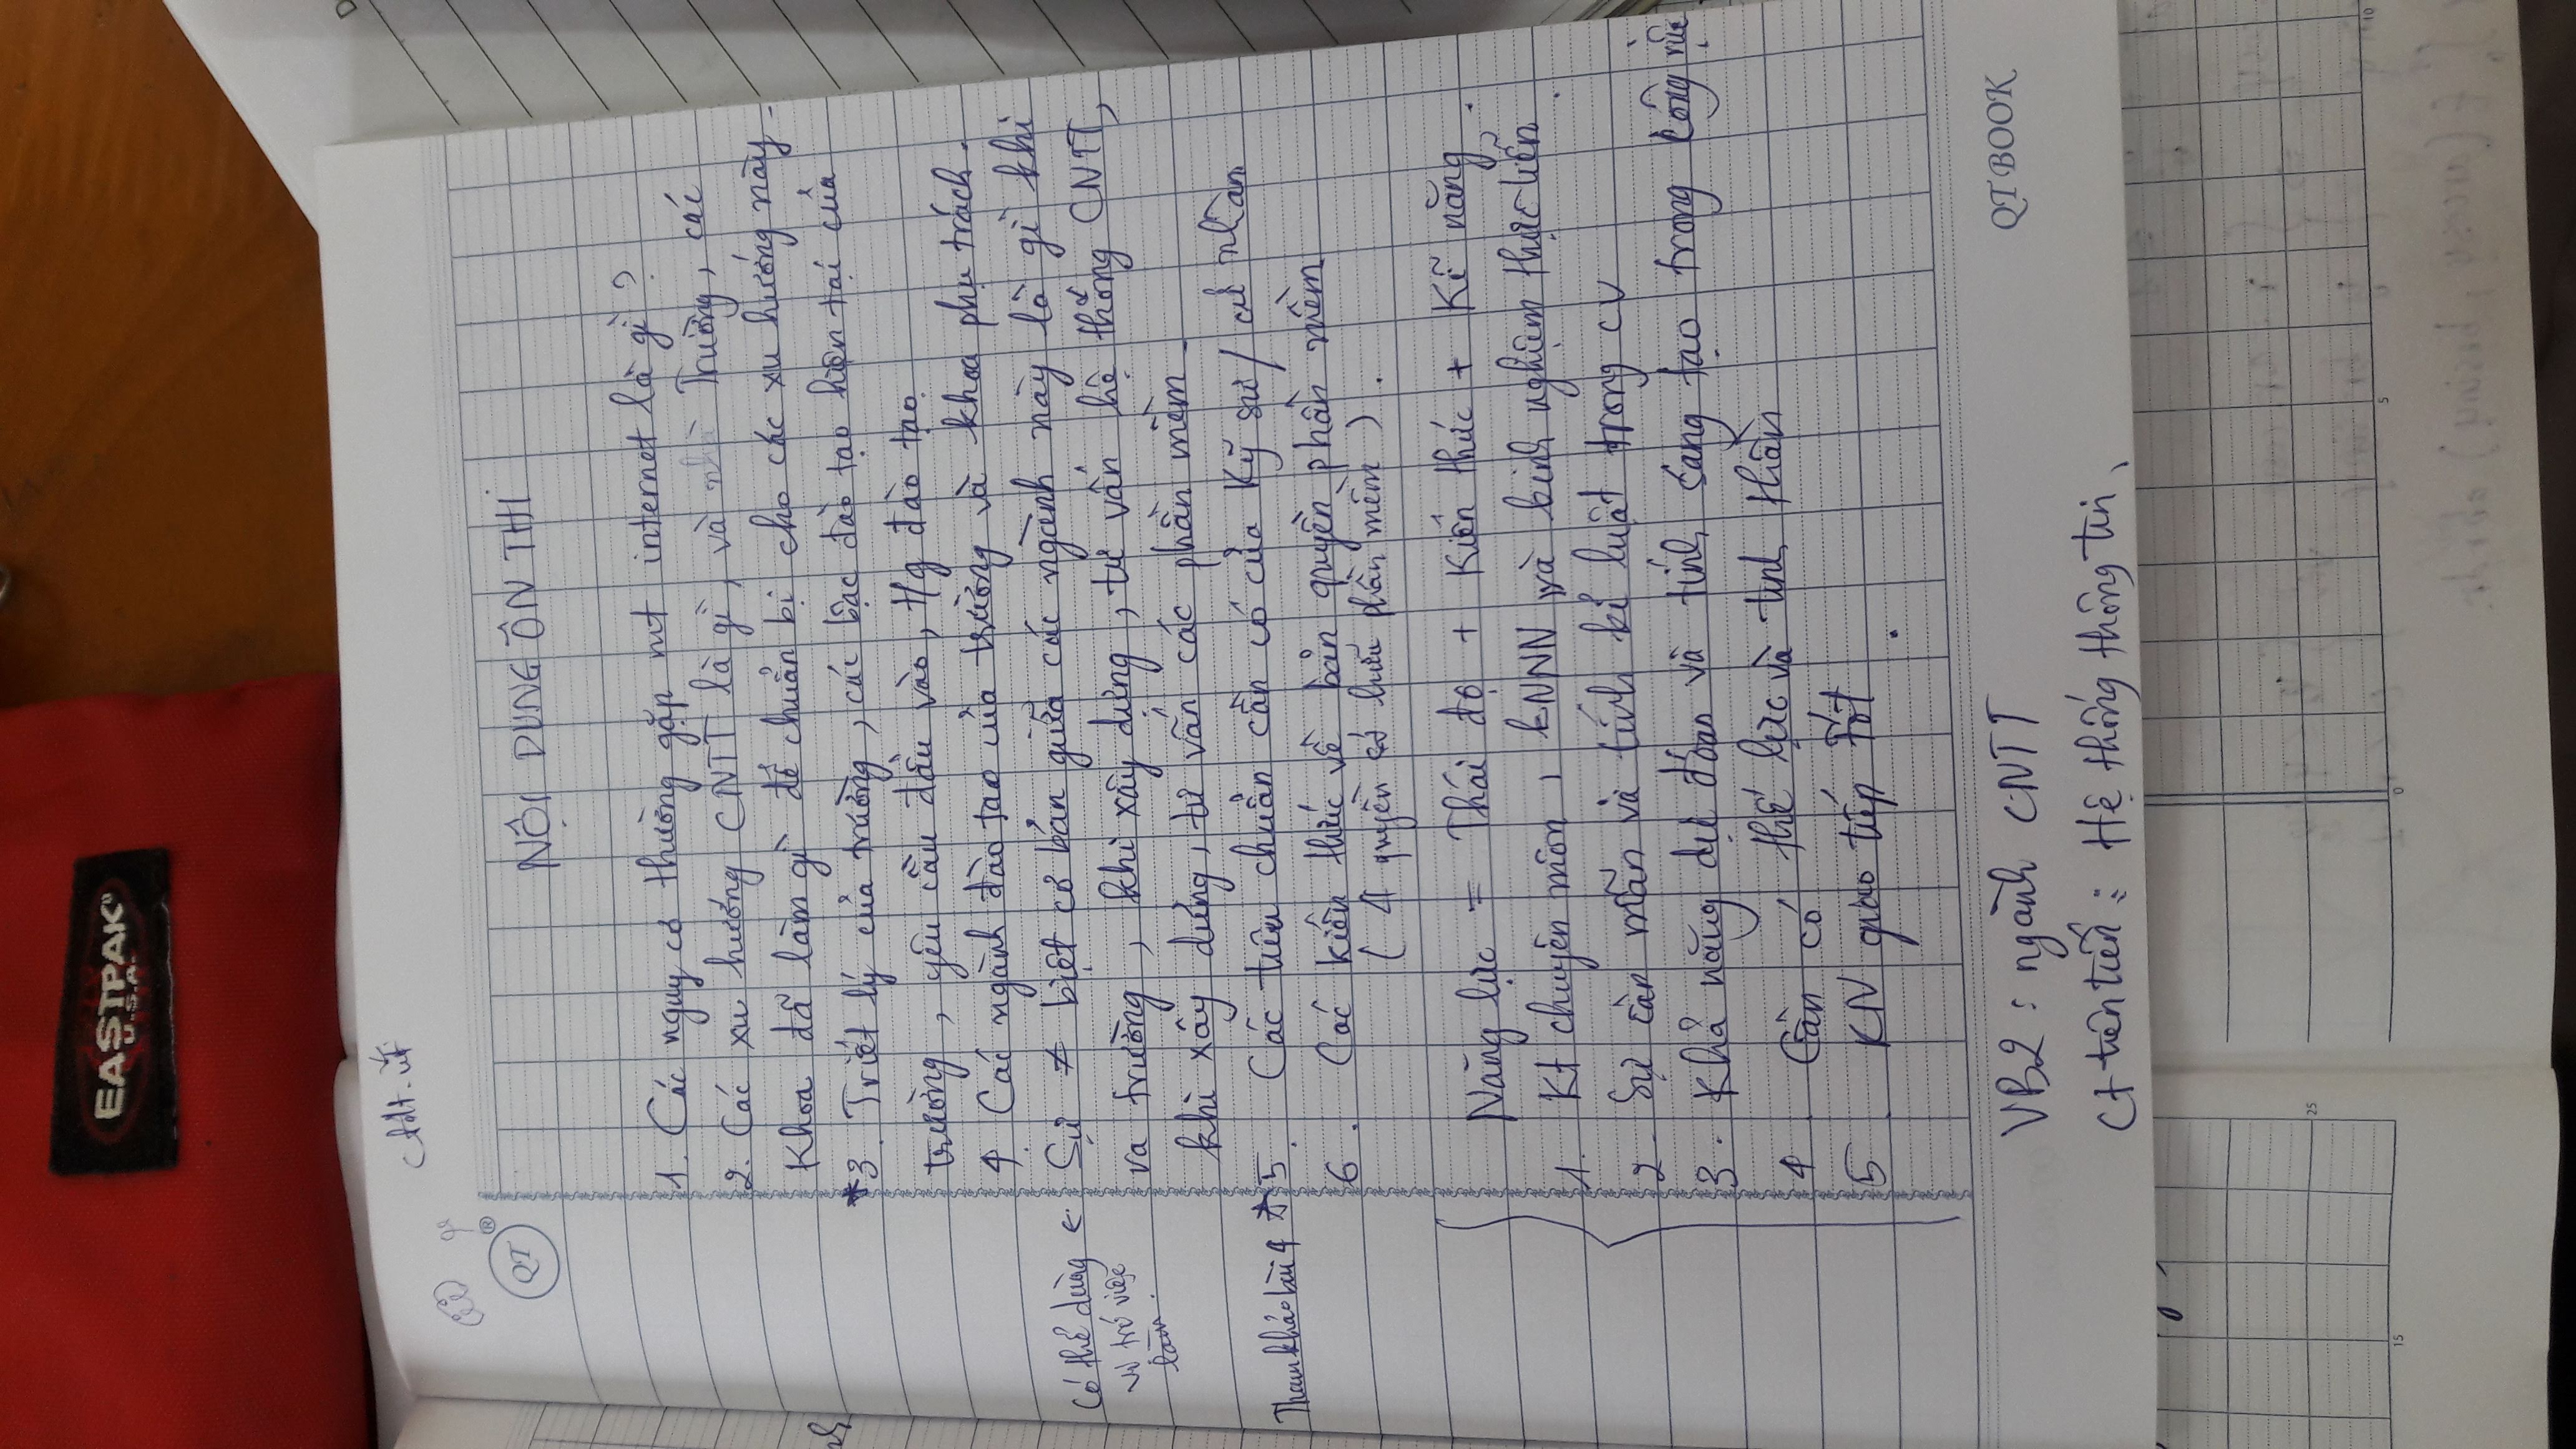 EASTPAK
U.S.A.
QT
®
NỘI DUNG ÔN THI
1. Các nguy cơ thường gặp internet là gì?
2. Các xu hướng CNTT là gì, và nhà Trường, các
Khoa đã làm gì để chuẩn bị cho các xu hướng này
*3. Triết lý của trường, các bậc đào tạo hiện tại của
trường, yêu cầu đầu vào, t/g đào tạo
4. Các ngành đào tạo của trường và khoa phụ trách.
Có thể dùng ← Sự ≠ biệt cơ bản giữa các ngành này là gì khi
vị trí việc
làm.
ra trường, khi xây dựng, tư vấn hệ thống CNTT,
khi xây dựng, tư vấn các phần mềm
Tham khảo bài 4 *5. Các tiêu chuẩn cần có của Kỹ sư / cử nhân
6. Các kiến thức về bản quyền phần mềm
(4 quyền sở hữu phần mềm).
Năng lực = Thái độ + Kiến thức + Kĩ năng.
1. Kt chuyên môn, kNNN và kinh nghiệm thực tiễn.
2. Sự cần mẫn và tính kỉ luật trong CV
3. Khả năng dự đoán và tính sáng tạo trong công việc
4. Cần có thể lực và tinh thần
5. KN giao tiếp tốt.
QT BOOK
VB2: ngành CNTT
Ct tiên tiến: Hệ thống thông tin,
25
15
0
5
10